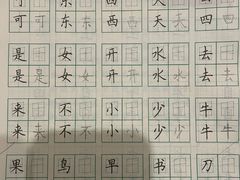 可 东 西 天 四
可 可 东 东 西 西 天 天 四 四
是 女 开 水 去
是 是 女 女 开 开 水 水 去 去
来 不 小 少 牛
来 来 不 不 小 小 少 少 牛 牛
果 鸟 早 书 刀